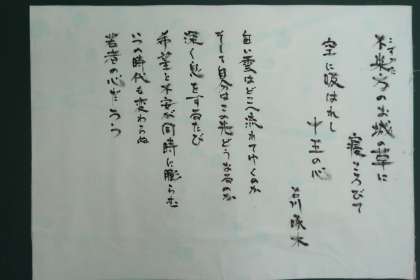 こずかた
不来方のお城の草に
寝ころびて
空に吸はれし
十五の心
石川啄木
白い雲はどこへ流れて行くのか
そして自分はこの先どうなるのか
深く息をするたび
希望と不安が同時に膨らむ
いつの時代も変わらぬ
若者の心だろう